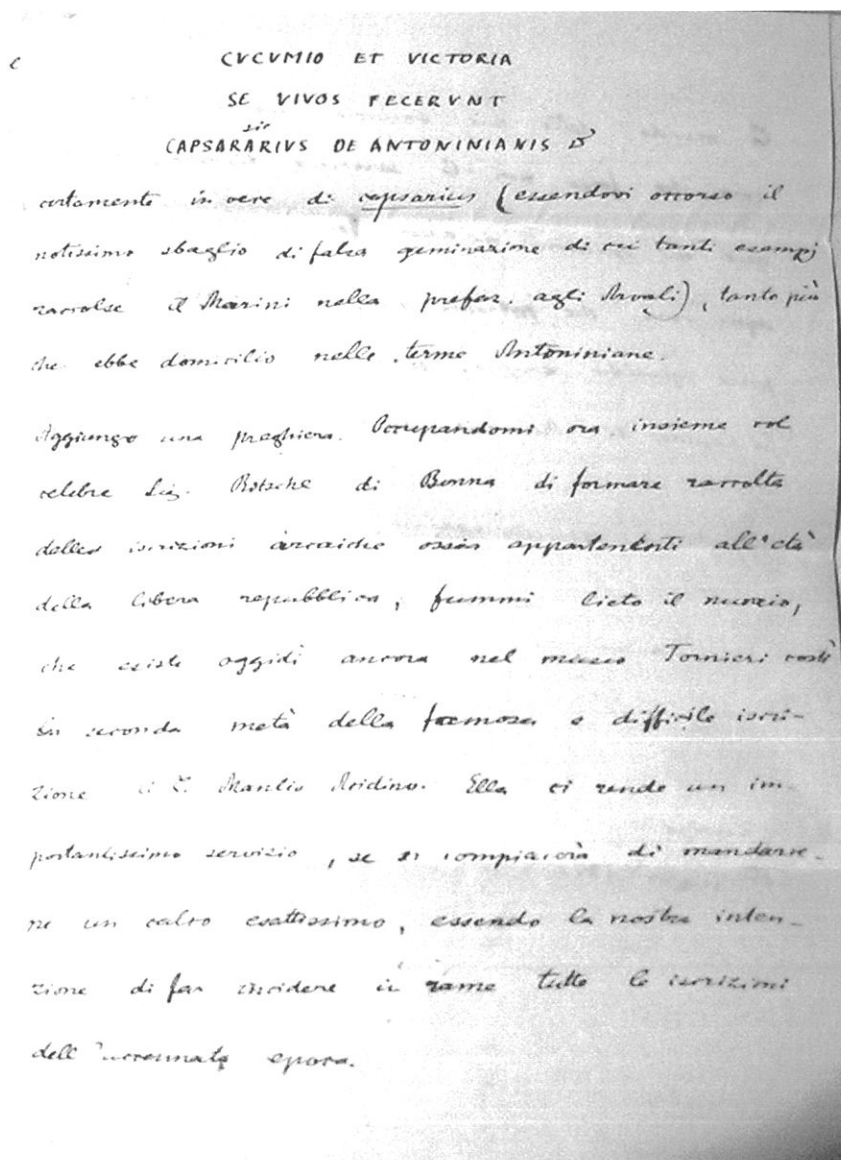 CVCVMIO ET VICTORIA
SE VIVOS FECERVNT
sic
CAPSARARIVS DE ANTONINIANIS
certamente in vece di capsarius (essendovi occorso il
notissimo sbaglio di falsa geminazione di cui tanti esempj
raccolse il Marini nella prefaz. agli Arvali), tanto più
che ebbe domicilio nelle terme Antoniniane.
Aggiungo una preghiera. Occupandomi ora insieme col
celebre Sig. Ritschl di Bonna di formare raccolta
delle iscrizioni arcaiche ossia appartenenti all'età
della libera repubblica, fummi lieto il nunzio,
che esiste oggidì ancora nel museo Tornieri costì
la seconda metà della famosa e difficile iscri-
zione di Manlio Acidino. Ella ci rende un im-
portantissimo servizio, se si compiacerà di mandarce-
ne un calco esattissimo, essendo la nostra inten-
zione di far incidere in rame tutte le iscrizioni
dell'accennata epoca.